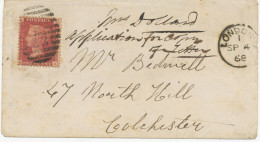 Dollard
Application for Copy
of Letter
Mr Bedwell
47 North Hill
Colchester
LONDON
1
SP 4
68